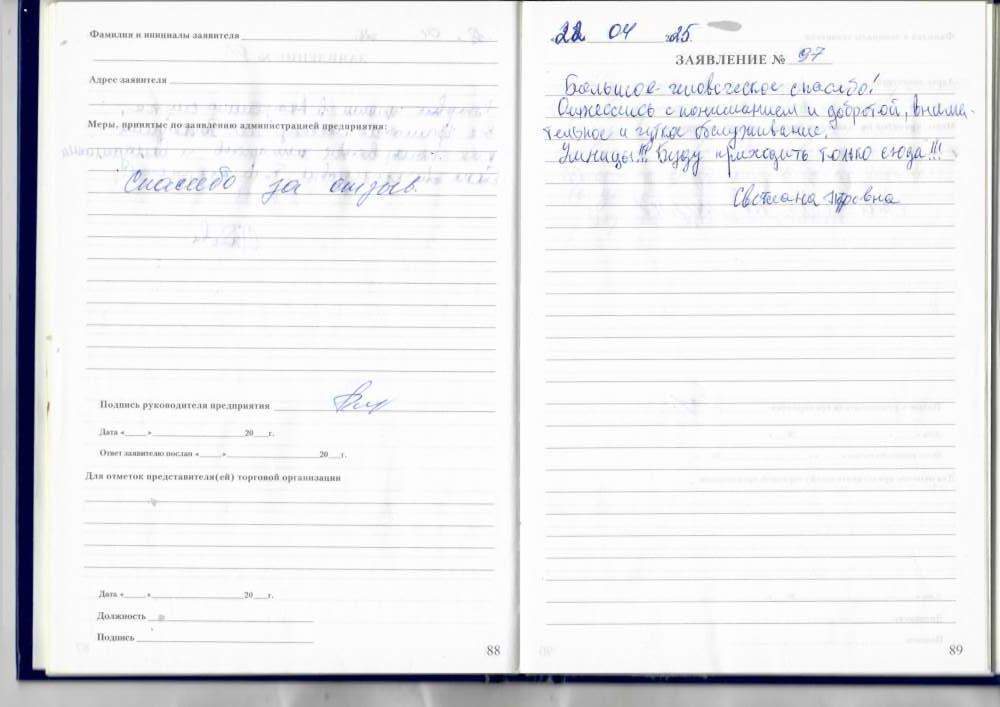 Фамилия и инициалы заявителя
Адрес заявителя
Меры, принятые по заявлению администрацией предприятия:
Спасибо за отзыв.
Подпись руководителя предприятия
Дата «_____»____________________20___г.
Ответ заявителю послан «_____»____________________20___г.
Для отметок представителя(ей) торговой организации
Дата «_____»____________________20___г.
Должность
Подпись
88
22 04 2025.
ЗАЯВЛЕНИЕ № 97
Большое человеческое спасибо!
с пониманием и добротой, внима-
тельное и чуткое обслуживание.
Умницы!!! Буду приходить только сюда!!!
Светлана
89